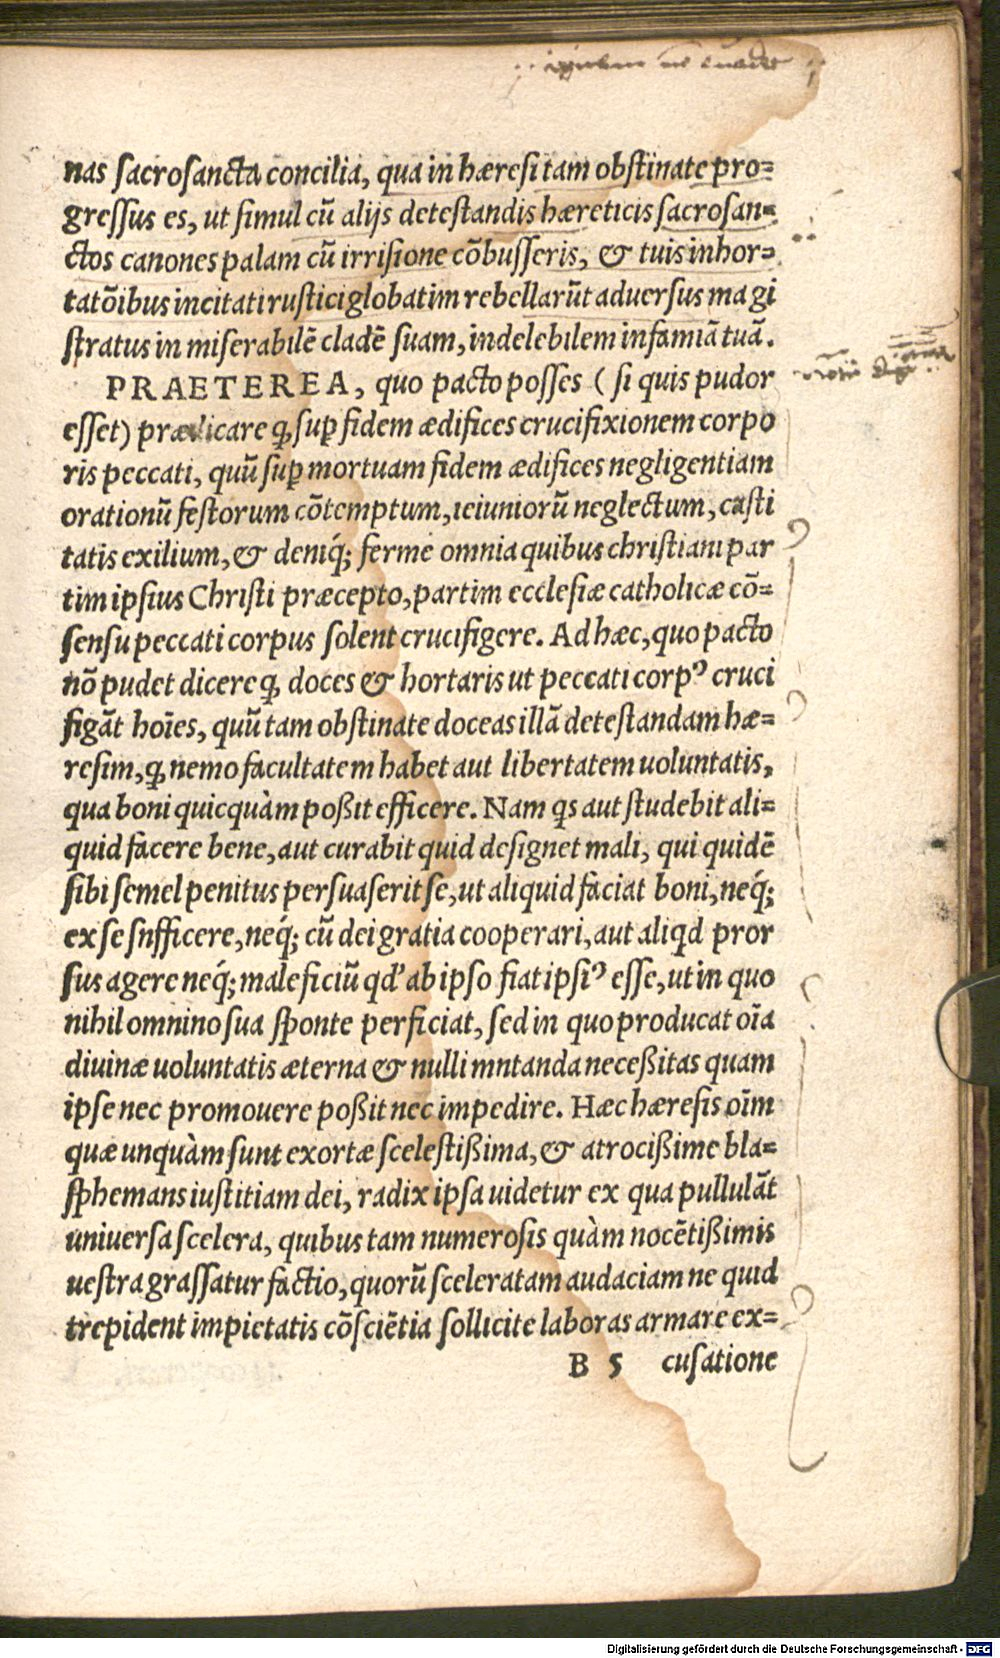 nas sacrosancta concilia, qua in hæresi tam obstinate pro-
gressus es, ut simul cũ alijs detestandis hæreticis sacrosan-
ctos canones palam cũ irrisione cõbusseris, & tuis inhor-
tatõibus incitati rustici globatim rebellarũt aduersus magi
stratus in miserabilẽ cladẽ suam, indelebilem infamiã tuã.
PRAETEREA, quo pacto posses ( si quis pudor
esset) prædicare ꝙ sup̱ fidem ædifices crucifixionem corpo
ris peccati, quũ sup̱ mortuam fidem ædifices negligentiam
orationũ festorum cõtemptum, ieiuniorũ neglectum, casti
tatis exilium, & deniq́; ferme omnia quibus christiani par
tim ipsius Christi præcepto, partim ecclesiæ catholicæ cõ-
sensu peccati corpus solent crucifigere. Ad hæc, quo pacto
nõ pudet dicere ꝙ doces & hortaris ut peccati corpꝰ cruci
figãt hoĩes, quũ tam obstinate doceas illã detestandam hæ-
resim, ꝙ nemo facultatem habet aut libertatem uoluntatis,
qua boni quicquàm poßit efficere. Nam qs aut studebit ali-
quid facere bene, aut curabit quid designet mali, qui quidẽ
sibi semel penitus persuaserit se, ut aliquid faciat boni, neq́;
ex se snfficere, neq́; cũ dei gratia cooperari, aut aliqd pror
sus agere neq́; maleficiũ qd' ab ipso fiat ipsiꝰ esse, ut in quo
nihil omnino sua sponte perficiat, sed in quo producat oĩa
diuinæ uoluntatis æterna & nulli mntanda neceßitas quam
ipse nec promouere poßit nec impedire. Hæc hæresis oĩm
quæ unquàm sunt exortæ scelestißima, & atrocißime bla-
sphemans iustitiam dei, radix ipsa uidetur ex qua pullulãt
uniuersa scelera, quibus tam numerosis quàm nocẽtißimis
uestra grassatur factio, quorũ sceleratam audaciam ne quid
trepident impietatis cõsciẽtia sollicite laboras armare ex-
B 5 cusatione
Digitalisierung gefördert durch die Deutsche Forschungsgemeinschaft - DFG